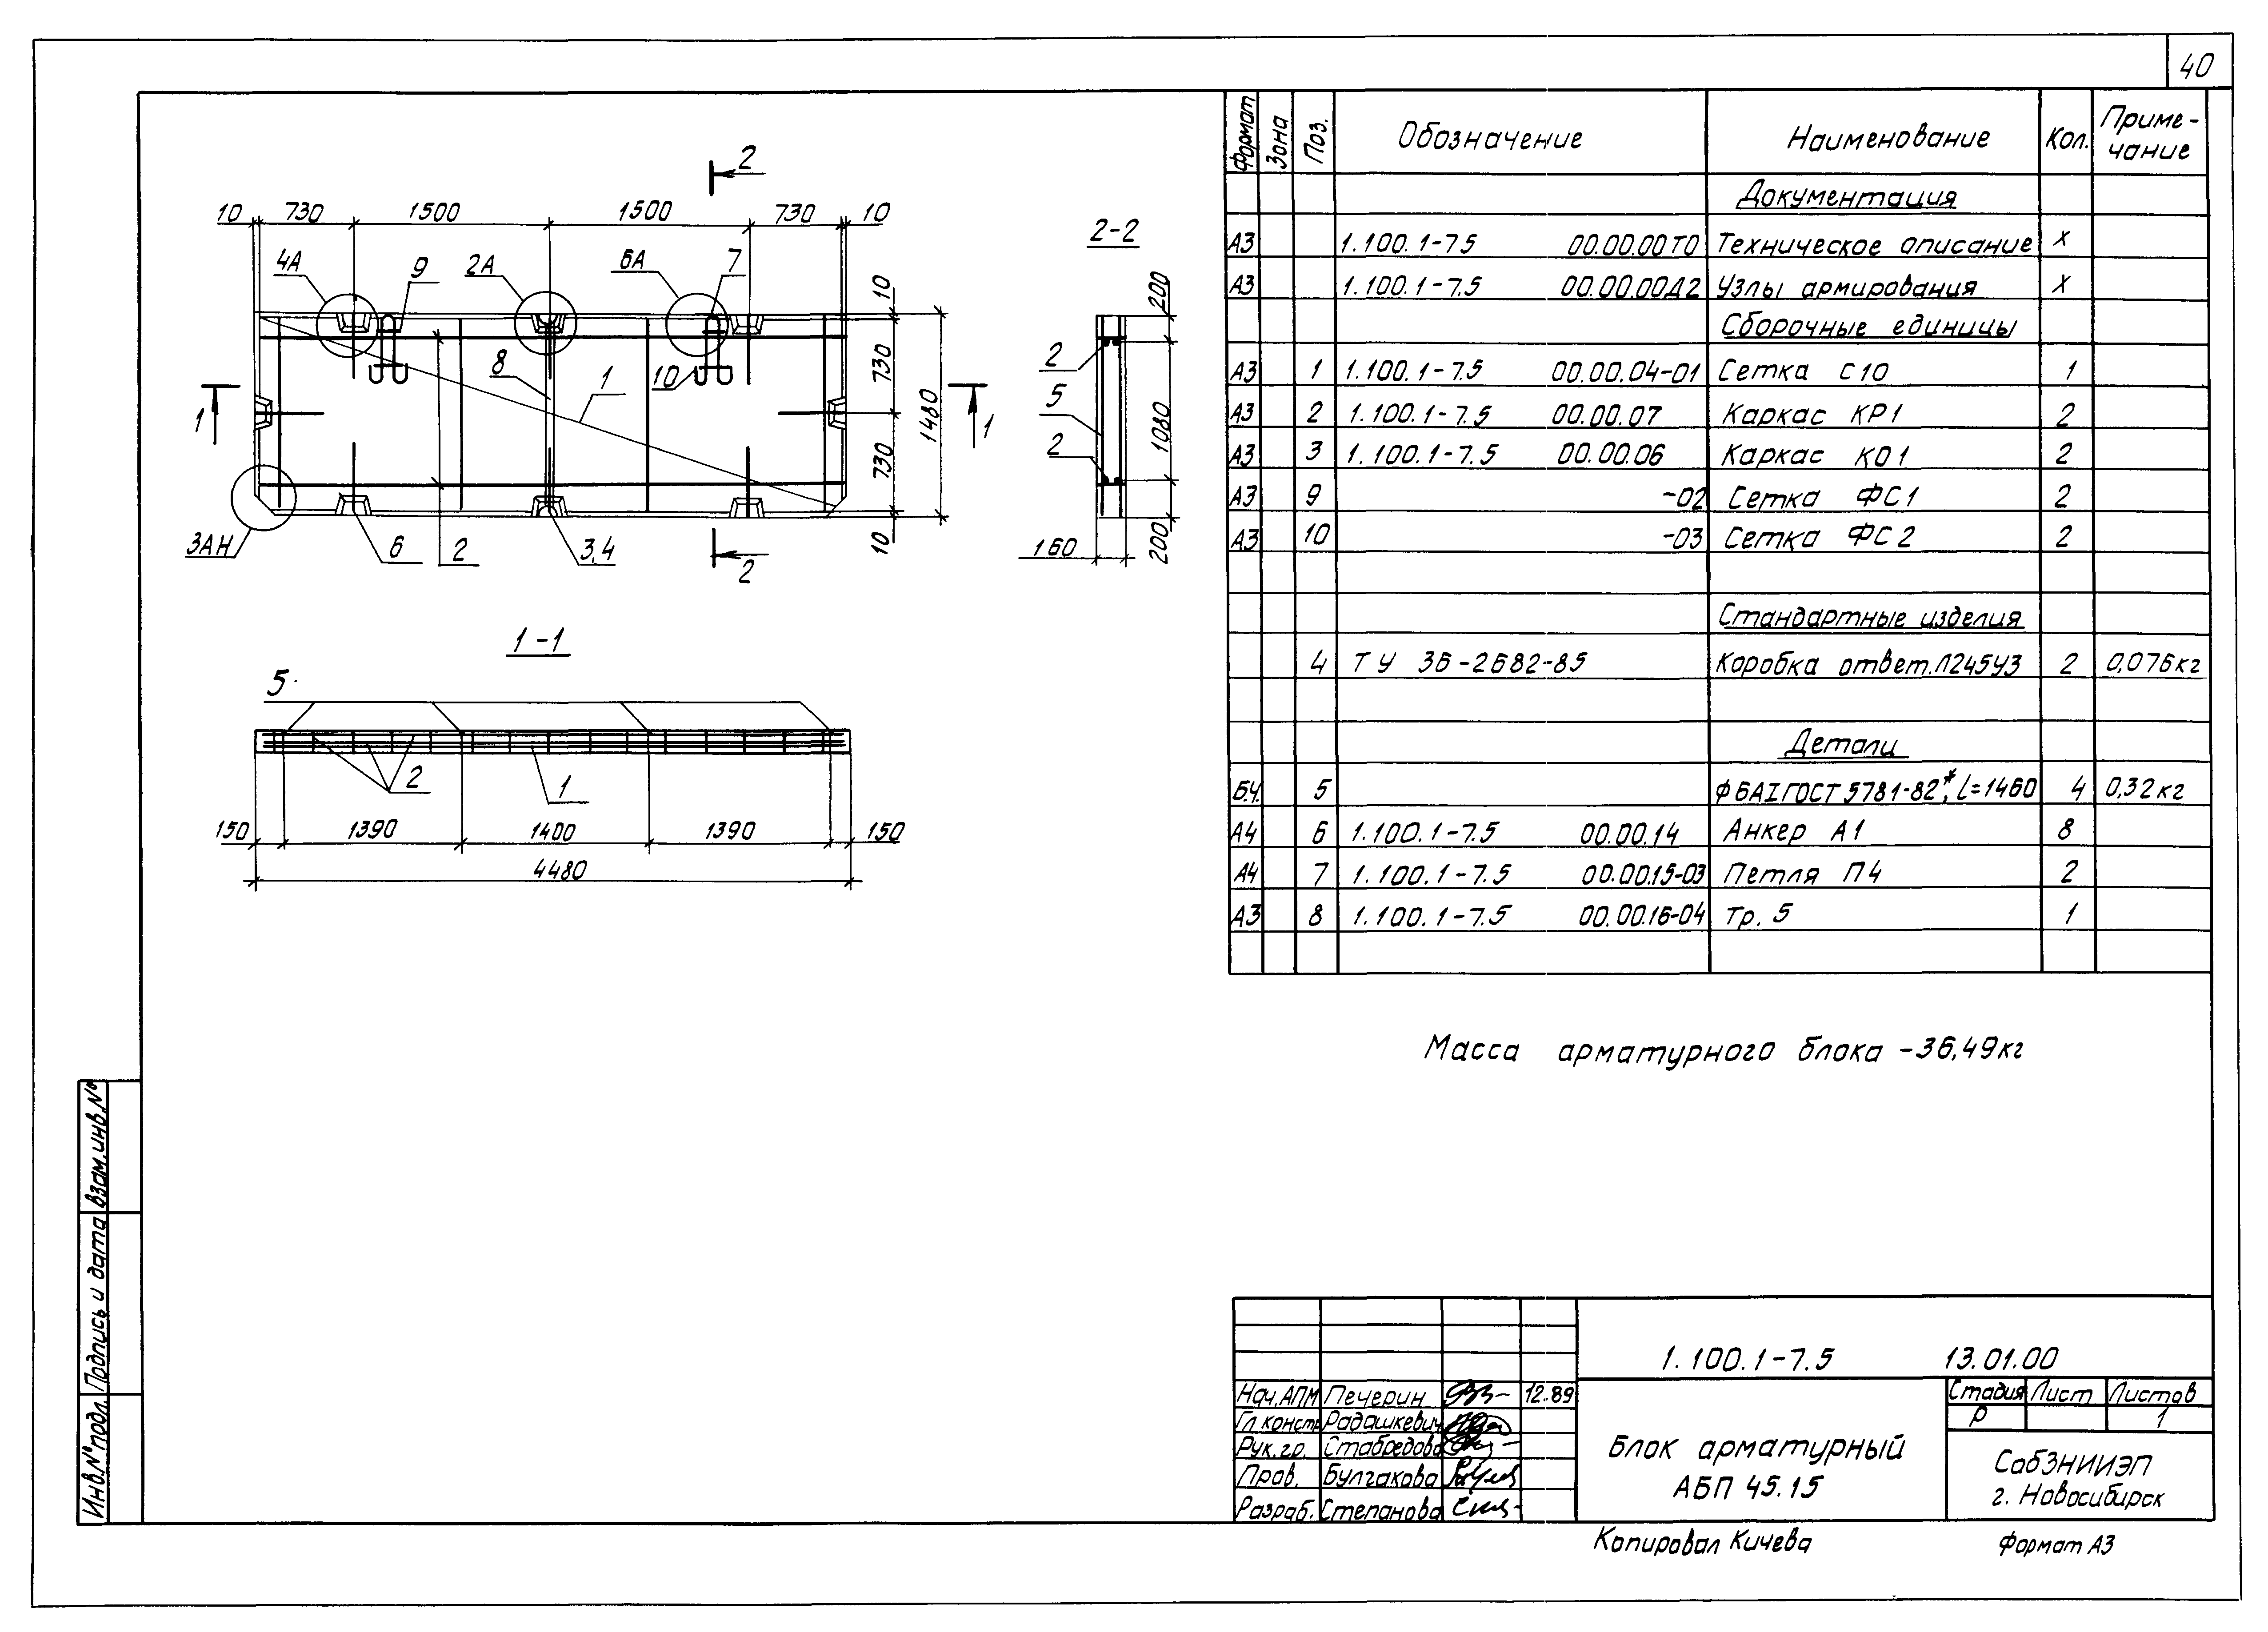 40
2
10 730 1500 1500 730 10
4А 9 2А 6А 7
10
730
730
10
1480
8 1 10
1 1
3АН 6 2 3,4 2
2-2
200
1080
200
2
5
2
160
1-1
5
2 1
150 1390 1400 1390 150
4480
Формат Зона Поз. Обозначение Наименование Кол. Приме-
чание
Документация
А3 1.100.1-7.5 00.00.00ТО Техническое описание х
А3 1.100.1-7.5 00.00.00Д2 Узлы армирования х
Сборочные единицы
А3 1 1.100.1-7.5 00.00.04-01 Сетка С10 1
А3 2 1.100.1-7.5 00.00.07 Каркас КР1 2
А3 3 1.100.1-7.5 00.00.06 Каркас КО1 2
А3 9 -02 Сетка ФС1 2
А3 10 -03 Сетка ФС2 2
Стандартные изделия
4 ТУ 36-2682-85 Коробка ответ.Л245У3 2 0,076кг
Детали
Б.Ч. 5 Ф6АI ГОСТ 5781-82*, l=1460 4 0,32кг
А4 6 1.100.1-7.5 00.00.14 Анкер А1 8
А4 7 1.100.1-7.5 00.00.15-03 Петля П4 2
А3 8 1.100.1-7.5 00.00.16-04 Тр. 5 1
Масса арматурного блока -36,49кг
Инв.№подл. Подпись и дата Взам.инв.№
1.100.1-7.5 13.01.00
Нач.АПМ Печерин 12.89
Гл констр Радашкевич
Рук.гр. Стабредова
Пров. Булгакова
Разраб. Степанова
Блок арматурный
АБП 45.15
Стадия Лист Листов
Р 1
СибЗНИИЭП
г. Новосибирск
Копировал Кичева Формат А3